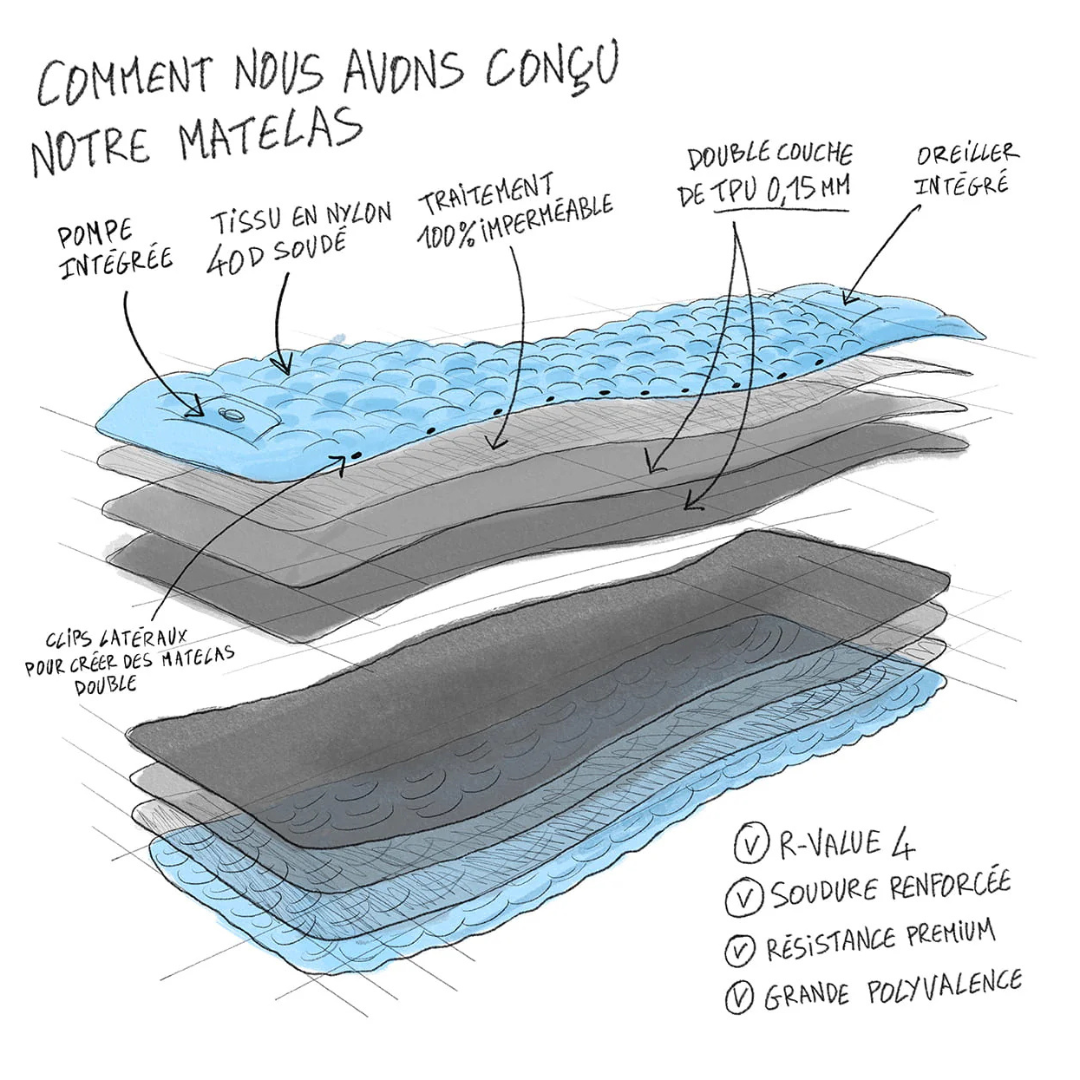 COMMENT NOUS AVONS CONÇU
NOTRE MATELAS
POMPE
INTÉGRÉE
TISSU EN NYLON
40D SOUDÉ
TRAITEMENT
100% IMPERMÉABLE
DOUBLE COUCHE
DE TPU 0,15 MM
OREILLER
INTÉGRÉ
CLIPS LATÉRAUX
POUR CRÉER DES MATELAS
DOUBLE
R-VALUE 4
SOUDURE RENFORCÉE
RÉSISTANCE PREMIUM
GRANDE POLYVALENCE